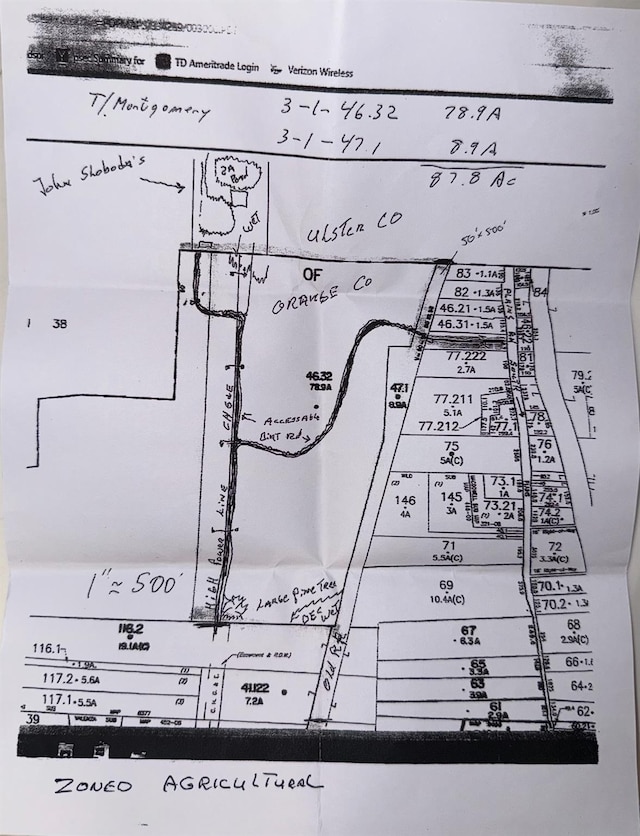 TD Ameritrade Login
Verizon Wireless
T/Montgomery 3-1-46.32 78.9A
3-1-47.1 8.9A
87.8 Ac
John Sloboda's
2A
Pond
WET
ULSTER CO
50' x 500'
OF
ORANGE CO
83 -1.1A
82 -1.3A
46.21 -1.5A
46.31 -1.5A
84
38
46.32
78.9A
47.1
8.9A
77.222
2.7A
81
79.2
77.211
5.1A
77.212
77.1
78
ACCESSABLE
DIRT RD
CHGNE
75
5A(C)
76
1.2A
146
4A
145
3A
73.1
1A
73.21
2A
74
74.2
1A(C)
HIGH POWER LINE
71
5.5A(C)
72
3.3A(C)
1" ≈ 500'
69
10.4A(C)
70.1
70.2 - 1.3
LARGE PINE TREE
DEC WET
Old RR
116.2
19.1A(C)
67
6.3A
68
2.9A(C)
116.1
1.9A
65
3.3A
66 -1.1
117.2 - 5.6A
41.122
7.2A
63
3.9A
64-2
117.1 - 5.5A
C.H.G.&E.
61
62
39
MAP 6377
ZONED AGRICULTURAL